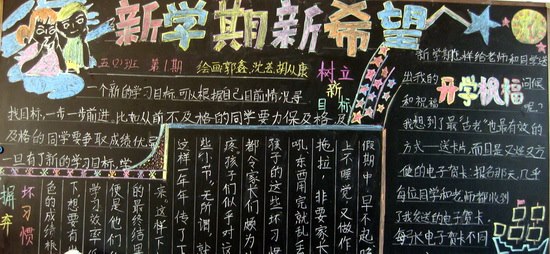 新学期新希望
五(1)班 第1期 绘画郭鑫,沈芸,胡从康
树立新目标
一个新的学习目标,可以根据自己目前情况寻
找目标,一步一步前进,比如从前不及格的同学要力保及格,及
及格的同学要争取成绩优
一旦有了新的学习目标,学
假期中,早不起
上不睡觉,又做作
拖拉,非要家长
吼,东西用完就乱丢
孩子的这些坏习惯
都令家长们烦力
孩孩子们似乎对这
些"小节"无所谓
这样一年年传了下
来。这样下
的最终结果
便是他们
学习效率低
下,想要有
色的成绩
摒弃坏习惯
新学期怎样给老师和同学送
出我的问候
和祝福呢?
开学祝福
我想到了最"古老"也最有效的
方式—送卡片,而且是又快又方
便的电子贺卡;报名那天,几乎
每位同学和老师都收到
了我发送的电子贺卡,
每张电子贺卡不同